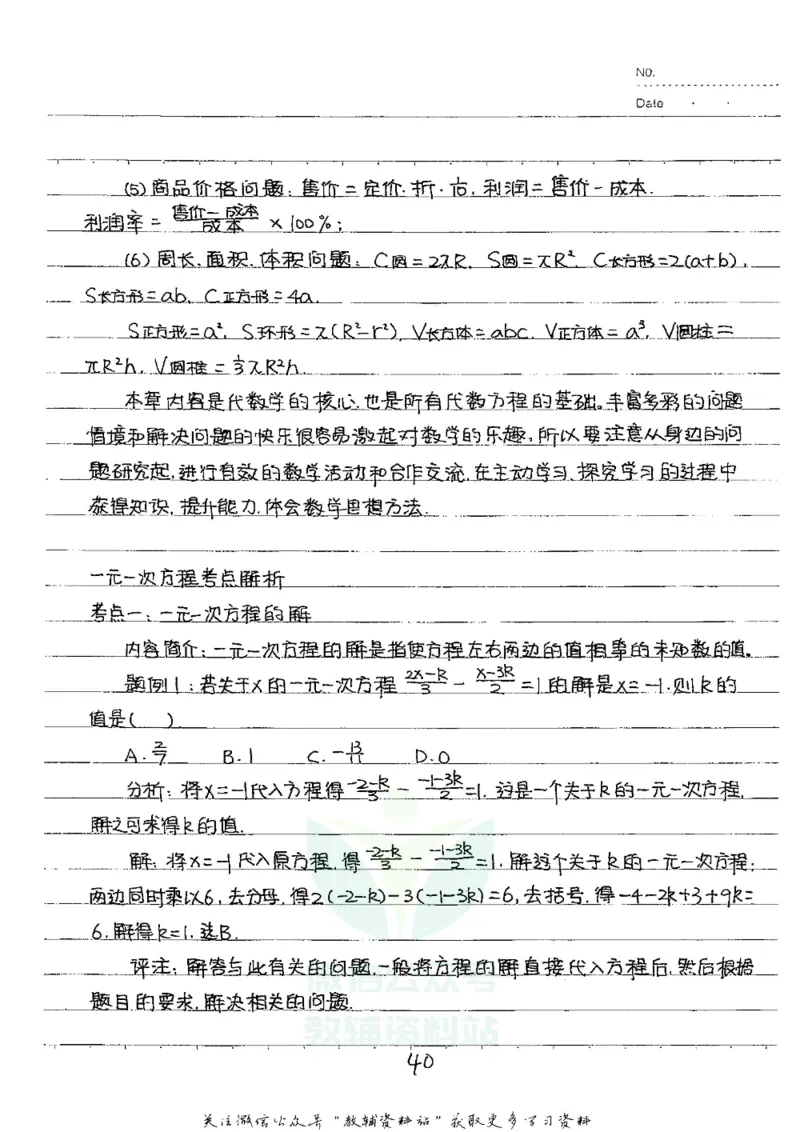 NO.
Date
(5)商品价格问题:售价=定价·折·10,利润=售价-成本.
利润率= (售价-成本)/成本 ×100%;
(6)周长、面积、体积问题:C圆=2πR, S圆=πR², C长方形=2(a+b),
S长方形=ab, C正方形=4a.
S正方形=a², S环形=π(R²-r²), V长方体=abc. V正方体=a³, V圆柱=
πR²h, V圆椎=1/3πR²h.
本章内容是代数学的核心,也是所有代数方程的基础。丰富多彩的问题
情境和解决问题的快乐很容易激起对数学的乐趣,所以要注意从身边的问
题研究起,进行有效的数学活动和合作交流,在主动学习、探究学习的过程中
获得知识,提升能力,体会数学思想方法.
一元一次方程考点解析
考点一:一元一次方程的解
内容简介:一元一次方程的解是指使方程左右两边的值相等的未知数的值。
题例1:若关于x的一元一次方程 (2x-k)/3 - (x-3k)/2 =1的解是x=-1.则k的
值是( )
A.2/7 B.1 C.-13/11 D.0
分析:将x=-1代入方程得(-2-k)/3 - (-1-3k)/2=1.这是一个关于k的一元一次方程,
解之可求得k的值.
解:将x=-1代入原方程,得 (-2-k)/3 - (-1-3k)/2=1.解这个关于k的一元一次方程:
两边同时乘以6,去分母,得2(-2-k)-3(-1-3k)=6,去括号,得-4-2k+3+9k=
6.解得k=1.选B.
评注:解答与此有关的问题,一般将方程的解直接代入方程后,然后根据
题目的要求,解决相关的问题.
微信公众号
教辅资料站
40
关注微信公众号"教辅资料站"获取更多学习资料